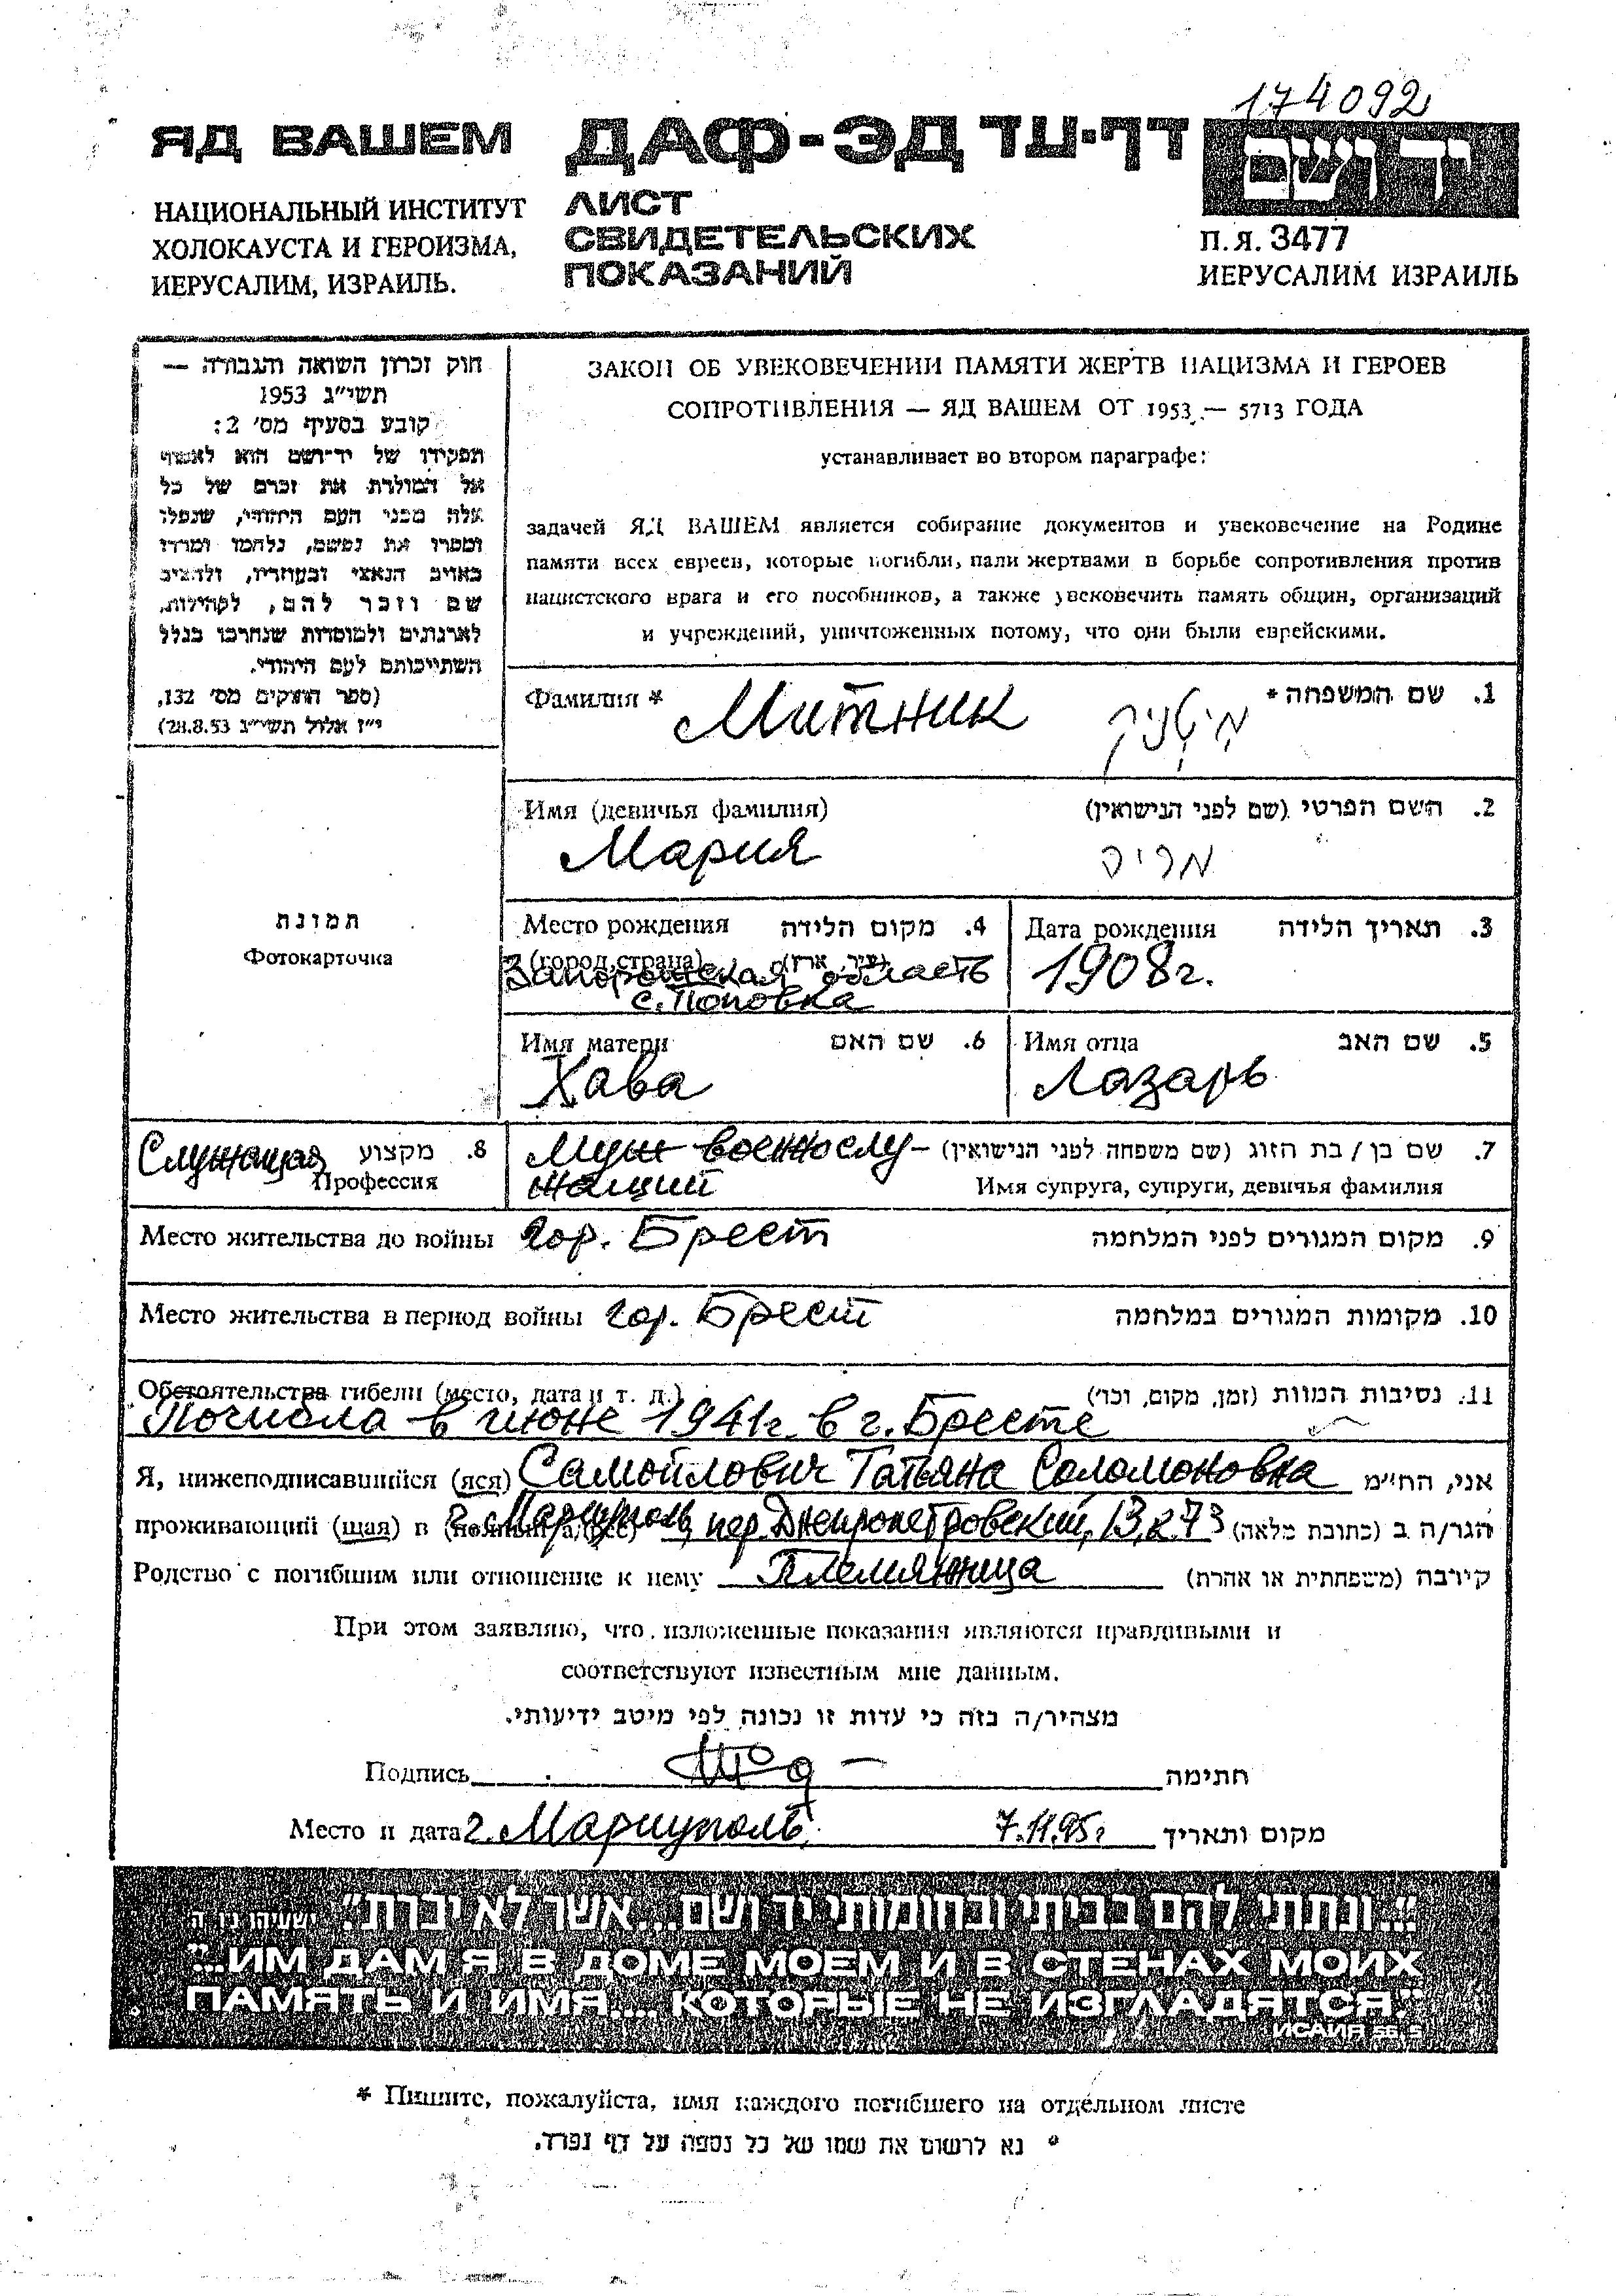 174092
ЯД ВАШЕМ ДАФ-ЭД דף-עד ידושם
НАЦИОНАЛЬНЫЙ ИНСТИТУТ
ХОЛОКАУСТА И ГЕРОИЗМА,
ИЕРУСАЛИМ, ИЗРАИЛЬ.
ЛИСТ
СВИДЕТЕЛЬСКИХ
ПОКАЗАНИЙ
П.Я. 3477
ИЕРУСАЛИМ ИЗРАИЛЬ
חוק זכרון השואה והגבורה —
תשי״ג 1953
קובע בסעיף מס׳ 2:
תפקידו של יד-ושם הוא לאסוף
אל המולדת את זכרם של כל
אלה מבני העם היהודי, שנפלו
ומסרו את נפשם, נלחמו ומרדו
באויב הנאצי ובעוזריו, ולהציב
שם וזכר להם, לקהילות,
לארגונים ולמוסדות שנחרבו בגלל
השתייכותם לעם היהודי.
(ספר החוקים מס׳ 132,
י״ז אלול תשי״ג 28.8.53)
ЗАКОН ОБ УВЕКОВЕЧЕНИИ ПАМЯТИ ЖЕРТВ НАЦИЗМА И ГЕРОЕВ
СОПРОТИВЛЕНИЯ — ЯД ВАШЕМ ОТ 1953 — 5713 ГОДА
устанавливает во втором параграфе:
задачей ЯД ВАШЕМ является собирание документов и увековечение на Родине
памяти всех евреев, которые погибли, пали жертвами в борьбе сопротивления против
нацистского врага и его пособников, а также увековечить память общин, организаций
и учреждений, уничтоженных потому, что они были еврейскими.
Фамилия * Митник מיטניק 1. שם המשפחה *
Имя (девичья фамилия) 2. השם הפרטי (שם לפני הנישואין)
Мария מריה
תמונת
Фотокарточка
Место рождения 4. מקום הלידה
(город, страна) (עיר, ארץ)
Запорожская область
с. Поповка
Дата рождения 3. תאריך הלידה
1908г.
Имя матери 6. שם האם
Хава
Имя отца 5. שם האב
Лазарь
Служащая 8. מקצוע
Профессия
Муж военнослу- 7. שם בן / בת הזוג (שם משפחה לפני הנישואין)
жащий Имя супруга, супруги, девичья фамилия
Место жительства до войны гор. Брест 9. מקום המגורים לפני המלחמה
Место жительства в период войны гор. Брест 10. מקומות המגורים במלחמה
Обстоятельства гибели (место, дата и т. д.) 11. נסיבות המוות (זמן, מקום, וכו׳)
Погибла в июне 1941г. в г. Бресте
Я, нижеподписавшийся (яся) Самойлович Татьяна Соломоновна אני, הח״מ
проживающий (щая) в (полный адрес) г. Мариуполь, пер Днепропетровский, 13, к 73 הגר/ה ב (כתובת מלאה)
Родство с погибшим или отношение к нему Племянница קירבה (משפחתית או אחרת)
При этом заявляю, что изложенные показания являются правдивыми и
соответствуют известным мне данным.
מצהיר/ה בזה כי עדות זו נכונה לפי מיטב ידיעותי.
Подпись חתימה
Место и дата г. Мариуполь 7.11.95г מקום ותאריך
״...ונתתי להם בביתי ובחומותי יד ושם... אשר לא יכרת״. ישעיהו נו ה
"...ИМ ДАМ Я В ДОМЕ МОЕМ И В СТЕНАХ МОИХ
ПАМЯТЬ И ИМЯ.... КОТОРЫЕ НЕ ИЗГЛАДЯТСЯ."
ИСАИЯ 56. 5
* Пишите, пожалуйста, имя каждого погибшего на отдельном листе
* נא לרשום את שמו של כל נספה על דף נפרד.